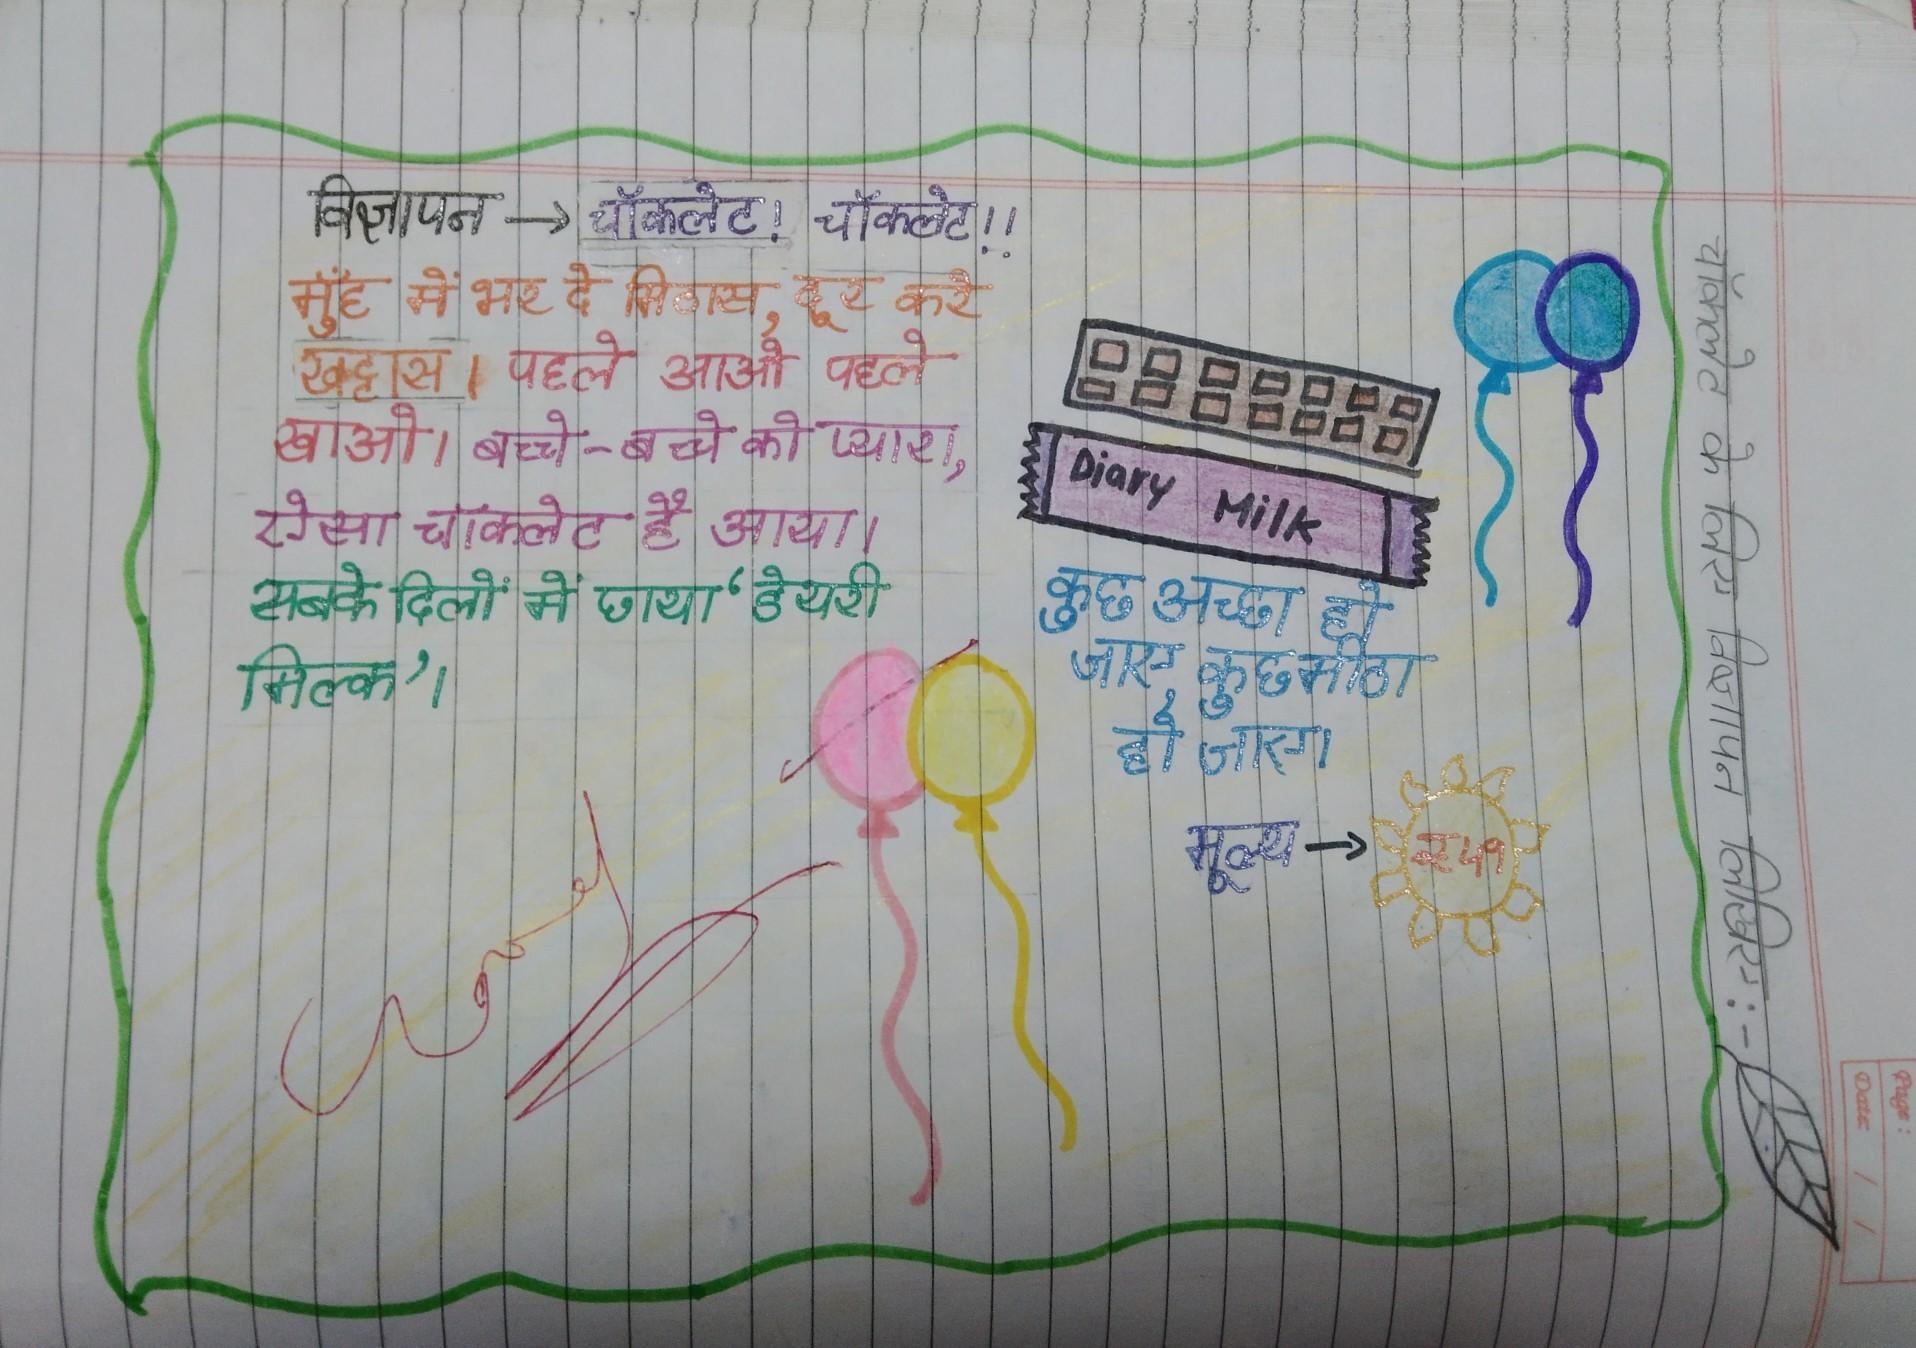 चॉकलेट के लिए विज्ञापन लिखिए:-
विज्ञापन → चॉकलेट! चॉकलेट!!
मुँह में भर दे मिठास, दूर करे
खट्टास। पहले आओ पहले
खाओ। बच्चे-बच्चे को प्यारा,
ऐसा चॉकलेट है आया।
सबके दिलों में छाया 'डेयरी
मिल्क'।
Diary Milk
कुछ अच्छा हो
जाए, कुछ मीठा
हो जाए।
मूल्य → ₹49
Page:
Date / /